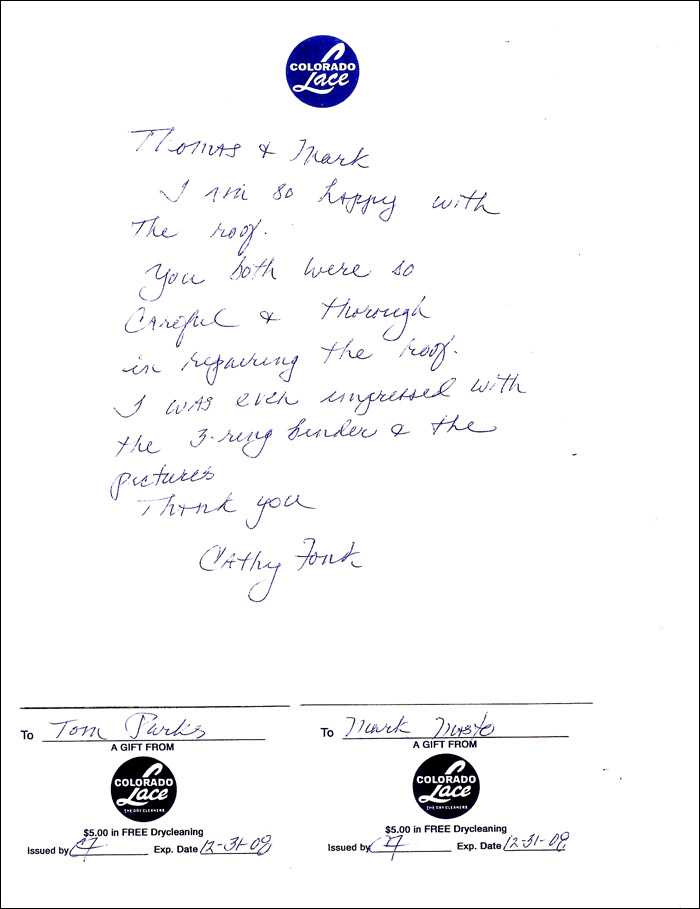 COLORADO
Lace
Thomas & Mark
I am so happy with
the roof.
You both were so
Careful & thorough
in repairing the roof.
I was even impressed with
the 3-ring binder & the
pictures
Thank you
Cathy Fonk
To Tom Parks
A GIFT FROM
COLORADO
Lace
THE DRY CLEANERS
$5.00 in FREE Drycleaning
Issued by CF Exp. Date 12-31-09
To Mark
A GIFT FROM
COLORADO
Lace
THE DRY CLEANERS
$5.00 in FREE Drycleaning
Issued by CF Exp. Date 12-31-09